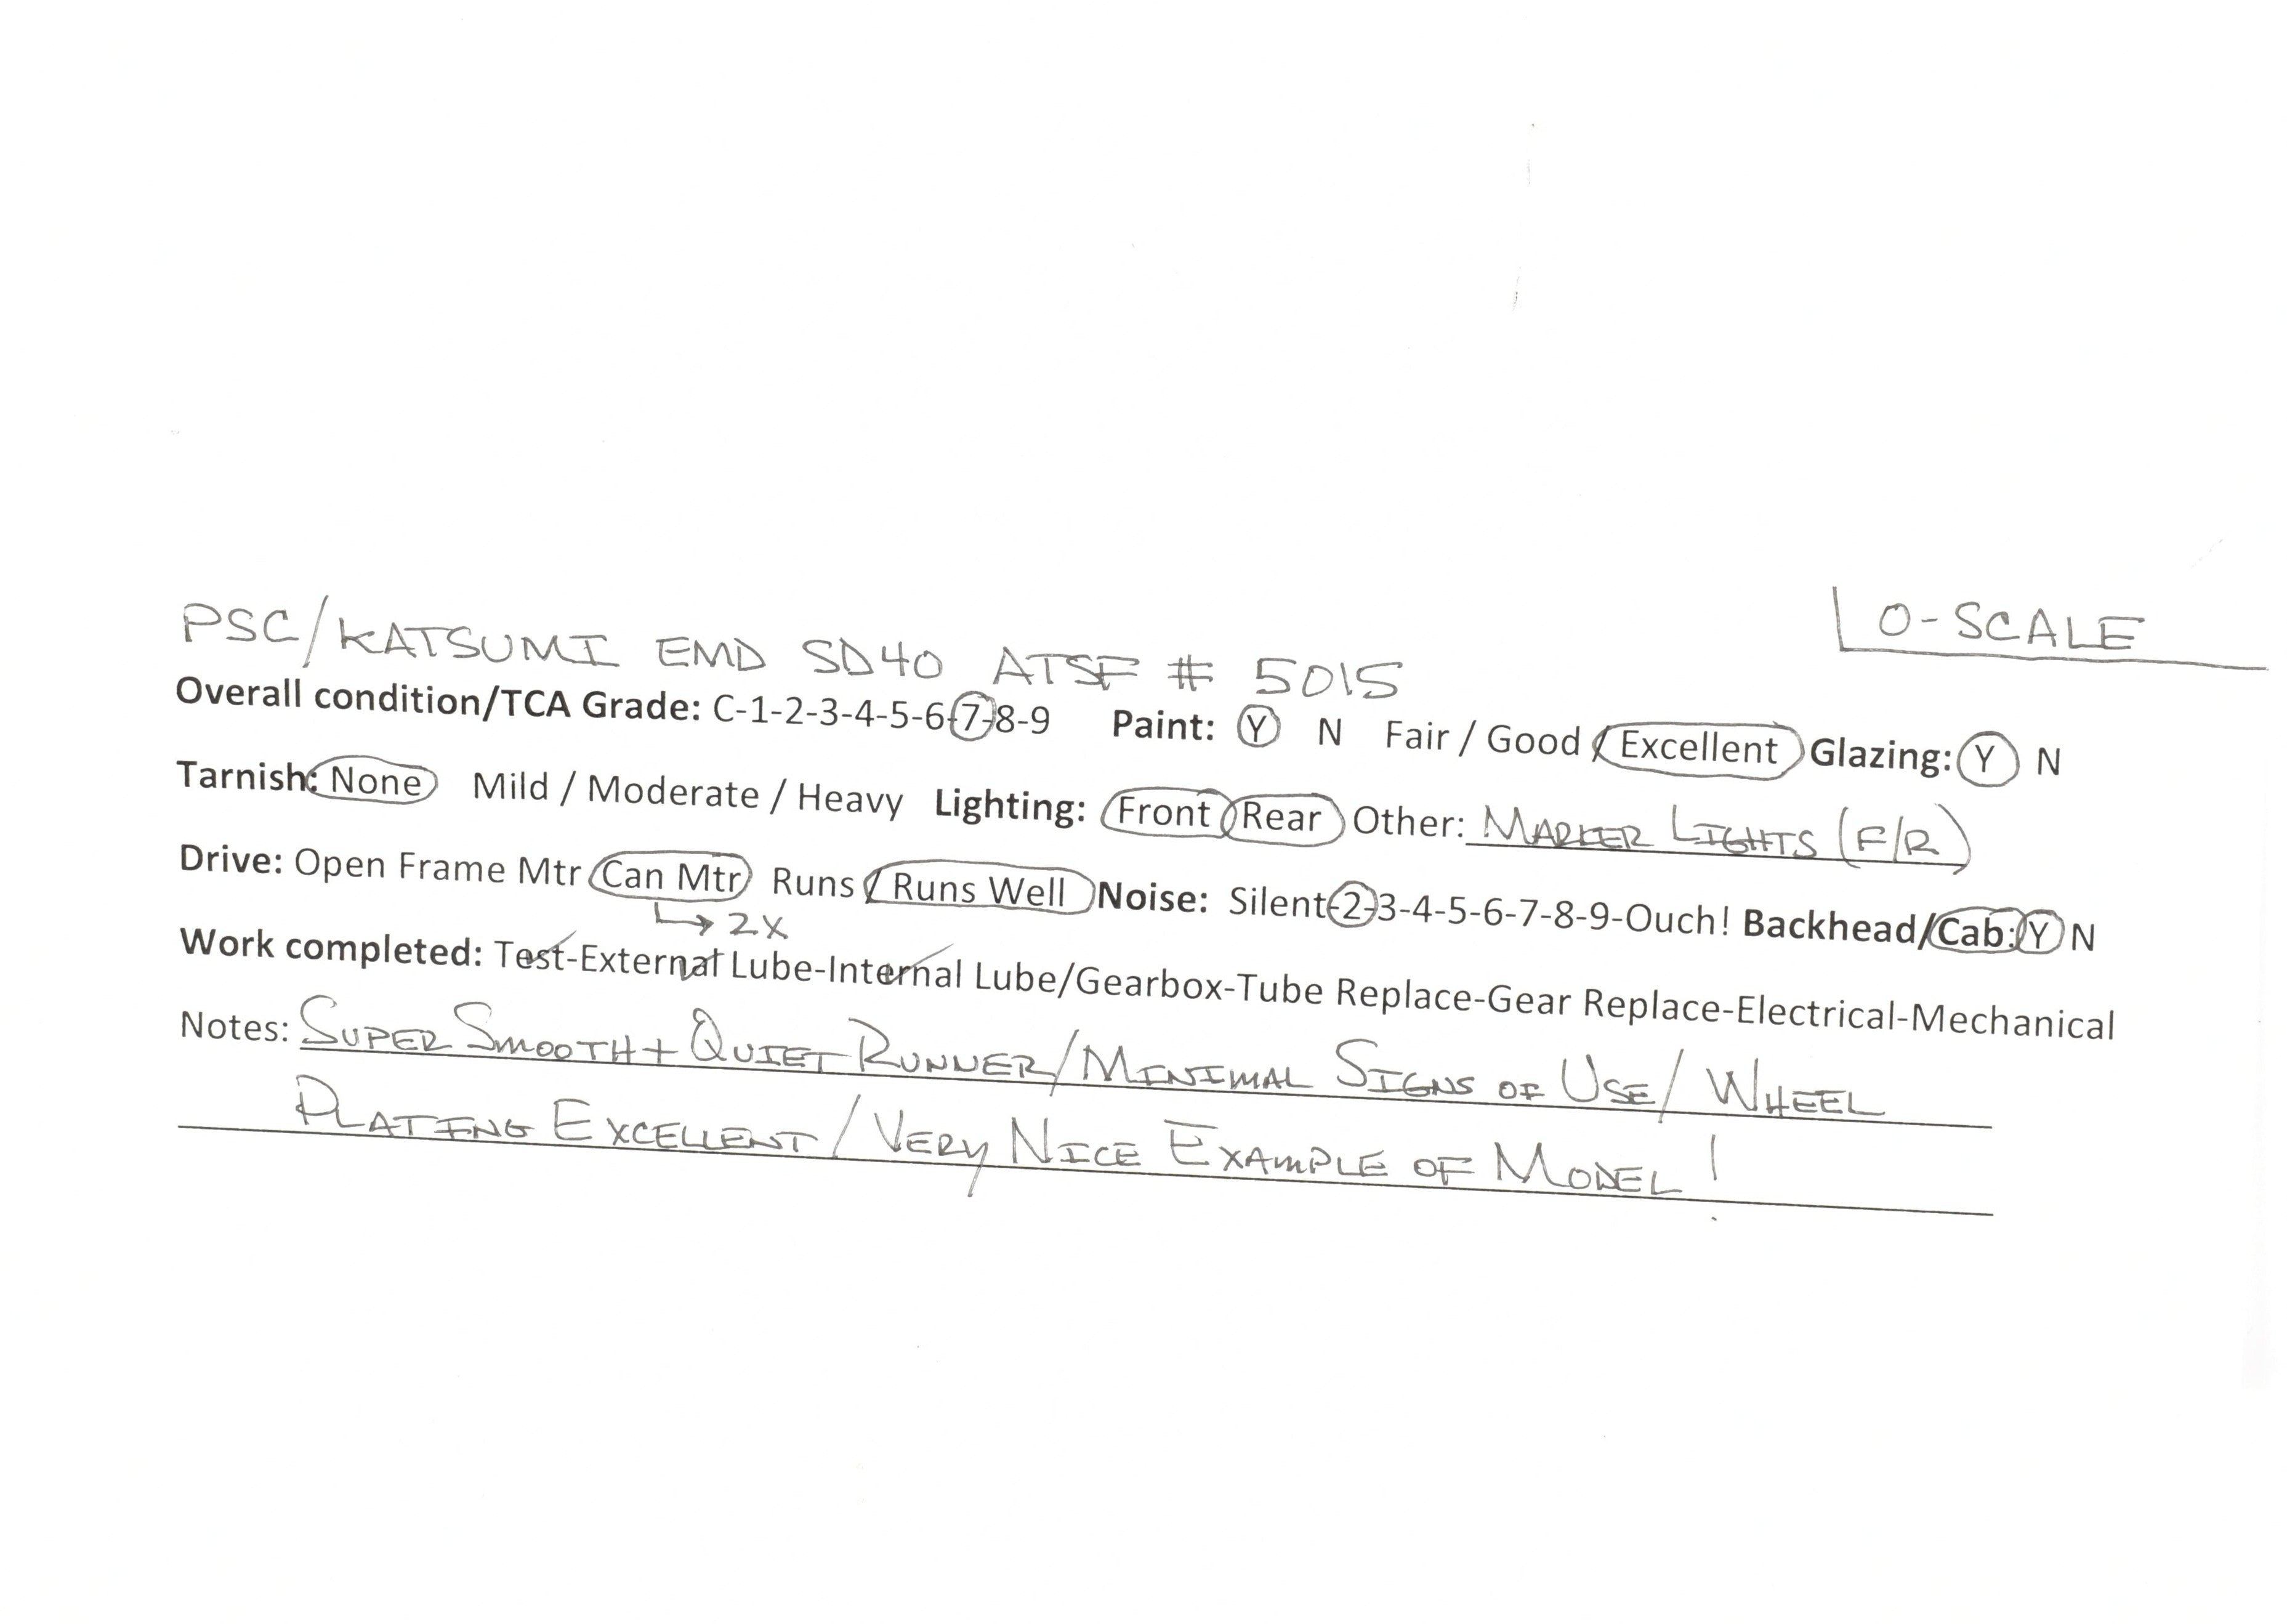 O-SCALE
PSC/KATSUMI EMD SD40 ATSF # 5015
Overall condition/TCA Grade: C-1-2-3-4-5-6-7-8-9 Paint: Y N Fair / Good / Excellent Glazing: Y N
Tarnish: None Mild / Moderate / Heavy Lighting: Front / Rear Other: MARKER LIGHTS (F/R)
Drive: Open Frame Mtr / Can Mtr Runs / Runs Well Noise: Silent-2-3-4-5-6-7-8-9-Ouch! Backhead/Cab: Y N
→ 2X
Work completed: Test-External Lube-Internal Lube/Gearbox-Tube Replace-Gear Replace-Electrical-Mechanical
Notes: SUPER SMOOTH + QUIET RUNNER/MINIMAL SIGNS OF USE/ WHEEL
PLATING EXCELLENT/VERY NICE EXAMPLE OF MODEL!